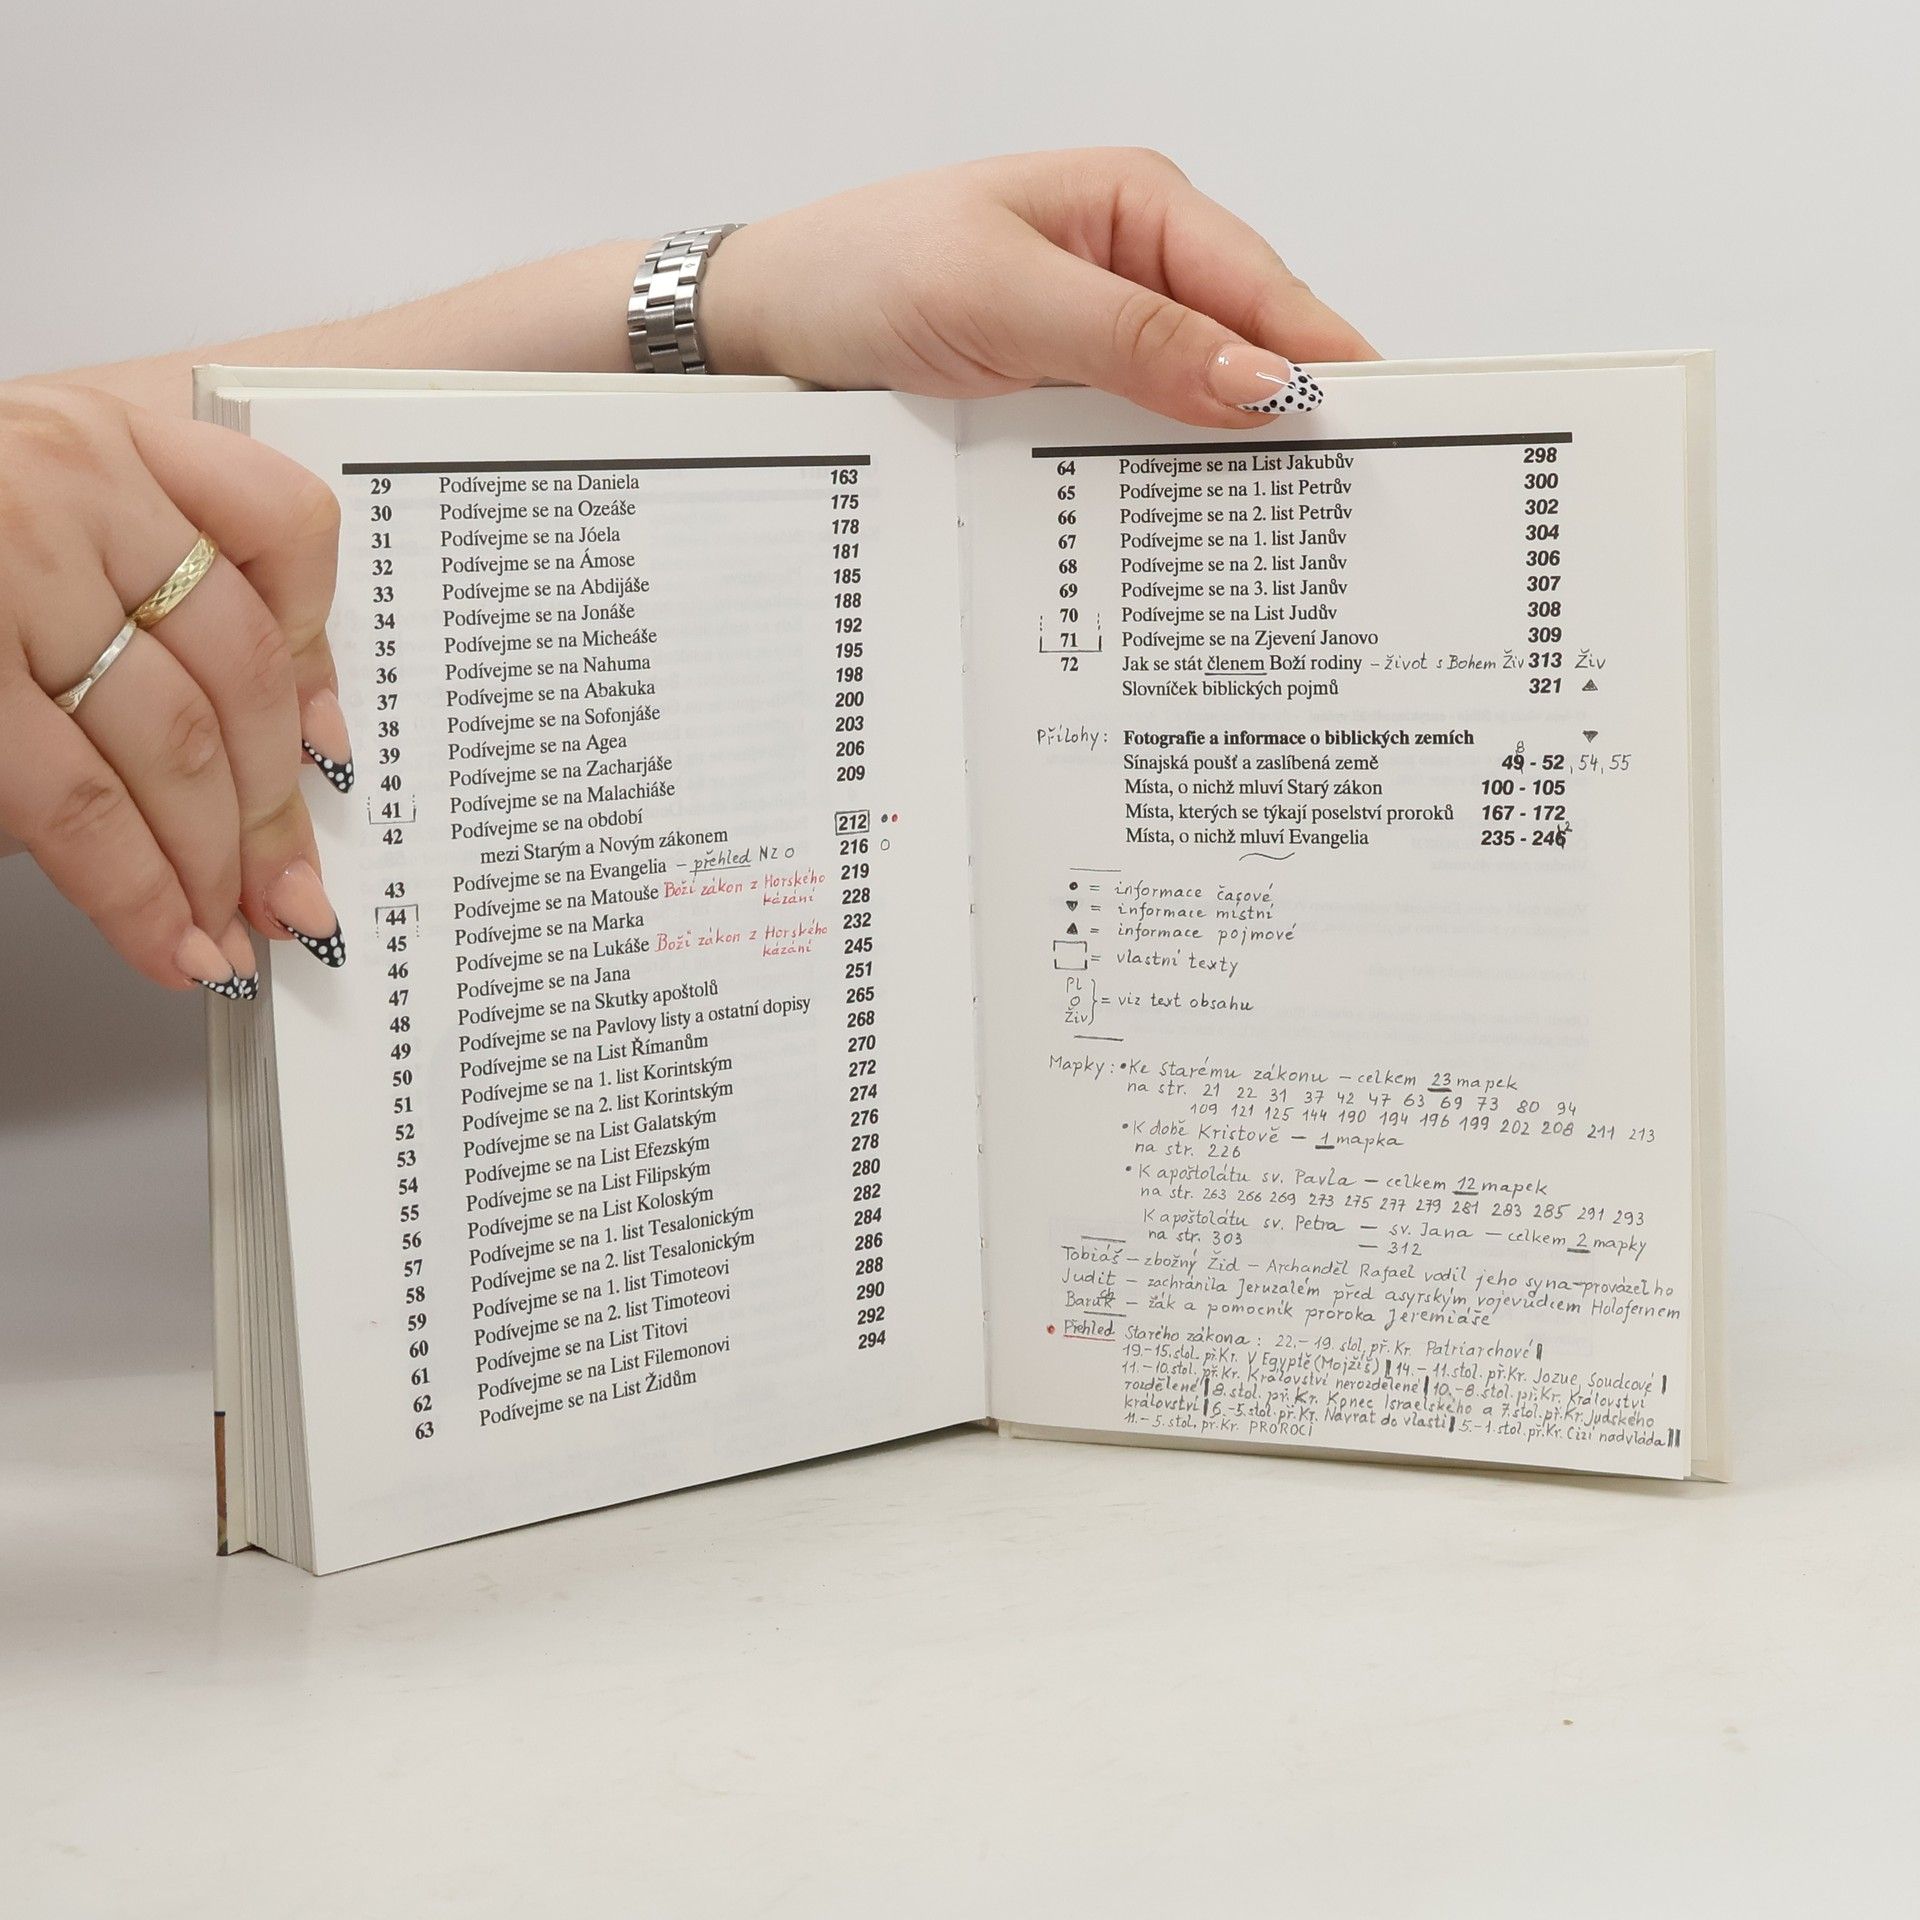 29 Podívejme se na Daniela 163
30 Podívejme se na Ozeáše 175
31 Podívejme se na Jóela 178
32 Podívejme se na Ámose 181
33 Podívejme se na Abdijáše 185
34 Podívejme se na Jonáše 188
35 Podívejme se na Micheáše 192
36 Podívejme se na Nahuma 195
37 Podívejme se na Abakuka 198
38 Podívejme se na Sofonjáše 200
39 Podívejme se na Agea 203
40 Podívejme se na Zacharjáše 206
41 Podívejme se na Malachiáše 209
42 Podívejme se na období
mezi Starým a Novým zákonem 212
43 Podívejme se na Evangelia – přehled NZ O 216 O
44 Podívejme se na Matouše Boží zákon z Horského kázání 219
45 Podívejme se na Marka 228
46 Podívejme se na Lukáše Boží zákon z Horského kázání 232
47 Podívejme se na Jana 245
48 Podívejme se na Skutky apoštolů 251
49 Podívejme se na Pavlovy listy a ostatní dopisy 265
50 Podívejme se na List Římanům 268
51 Podívejme se na 1. list Korintským 270
52 Podívejme se na 2. list Korintským 272
53 Podívejme se na List Galatským 274
54 Podívejme se na List Efezským 276
55 Podívejme se na List Filipským 278
56 Podívejme se na List Koloským 280
57 Podívejme se na 1. list Tesalonickým 282
58 Podívejme se na 2. list Tesalonickým 284
59 Podívejme se na 1. list Timoteovi 286
60 Podívejme se na 2. list Timoteovi 288
61 Podívejme se na List Titovi 290
62 Podívejme se na List Filemonovi 292
63 Podívejme se na List Židům 294
64 Podívejme se na List Jakubův 298
65 Podívejme se na 1. list Petrův 300
66 Podívejme se na 2. list Petrův 302
67 Podívejme se na 1. list Janův 304
68 Podívejme se na 2. list Janův 306
69 Podívejme se na 3. list Janův 307
70 Podívejme se na List Judův 308
71 Podívejme se na Zjevení Janovo 309
72 Jak se stát členem Boží rodiny – život s Bohem Živ 313 Živ
Slovníček biblických pojmů 321 ▲
Přílohy: Fotografie a informace o biblických zemích ▼
8
Sínajská poušť a zaslíbená země 49 - 52, 54, 55
Místa, o nichž mluví Starý zákon 100 - 105
Místa, kterých se týkají poselství proroků 167 - 172
Místa, o nichž mluví Evangelia 235 - 246
● = informace časové
▼ = informace místní
▲ = informace pojmové
= vlastní texty
Pl
O } = viz text obsahu
Živ
Mapky: • Ke Starému zákonu – celkem 23 mapek
na str. 21 22 31 37 42 47 63 69 73 80 94
109 121 125 144 190 194 196 199 202 208 211 213
• K době Kristově – 1 mapka
na str. 226
• K apoštolátu sv. Pavla – celkem 12 mapek
na str. 263 266 269 273 275 277 279 281 283 285 291 293
K apoštolátu sv. Petra – sv. Jana – celkem 2 mapky
na str. 303 – 312
Tobiáš – zbožný Žid – Archanděl Rafael vodil jeho syna – provázel ho
Judit – zachránila Jeruzalém před asyrským vojevůdcem Holofernem
Baruk ch – žák a pomocník proroka Jeremiáše
• Přehled Starého zákona: 22.–19. stol. př. Kr. Patriarchové |
19.–15. stol. př. Kr. V Egyptě (Mojžíš) | 14.–11. stol. př. Kr. Jozue, Soudcové |
11.–10. stol. př. Kr. Království nerozdělené | 10.–8. stol. př. Kr. Království
rozdělené | 8. stol. př. Kr. Konec Israelského a 7. stol. př. Kr. Judského
království | 6.–5. stol. př. Kr. Návrat do vlasti | 5.–1. stol. př. Kr. Cizí nadvláda ||
11.–5. stol. př. Kr. PROROCI